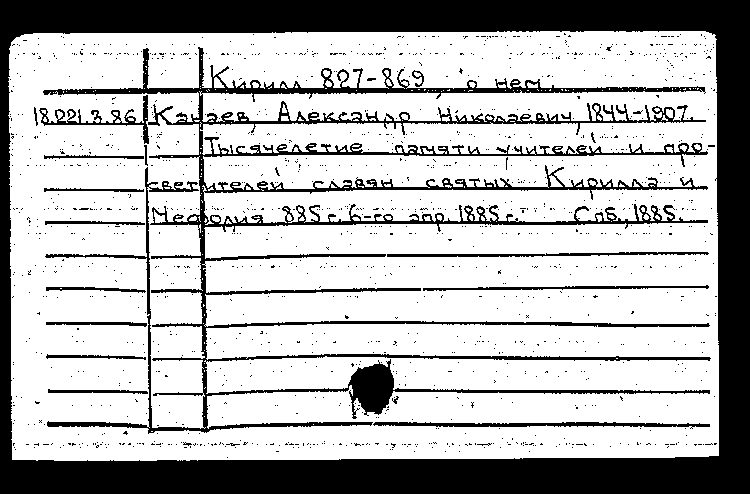 Кирилл, 827-869, о нем.
18.221.3.86. Канаев, Александр Николаевич, 1844-1907.
Тысячелетие памяти учителей и про-
светителей славян святых Кирилла и
Мефодия 885 г. 6-го апр. 1885 г. Спб., 1885.